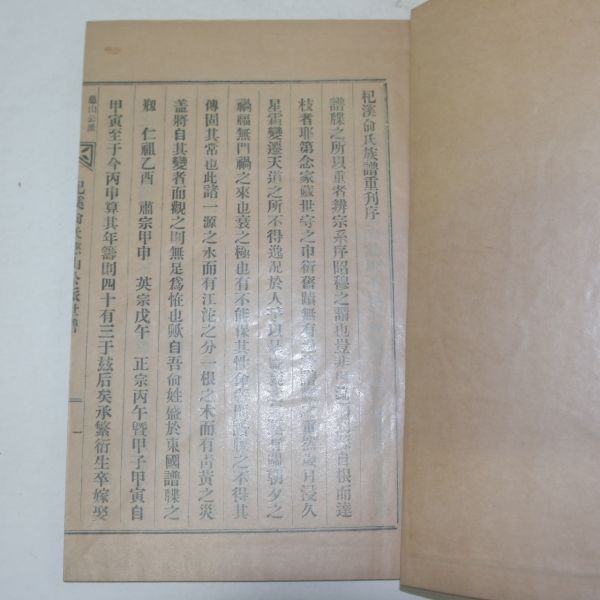 杞溪俞氏族譜重刊序
譜牒之所以重者辨宗系序昭穆之謂也豈非 自根而達
枝者耶第念家藏世守之巾衍舊蹟無有 重然歲月浸久
星霜變遷天道之所不得逸況於人乎以 朝夕之
禍福無門禍之來也衰之極也有不能保其性命 牒之不得其
傳固其常也此諸一源之水而有江沱之分一根之木而有青黃之災
盖將自其變者而觀之則無足爲恠也歟自吾俞姓盛於東國譜牒之
刱 仁祖乙酉 肅宗甲申 英宗戊午 正宗丙午曁甲子甲寅自
甲寅至于今丙申算其年籌則四十有三于玆后矣承繁衍生卒嫁娶
山公派
杞溪俞氏 山公派世譜
一